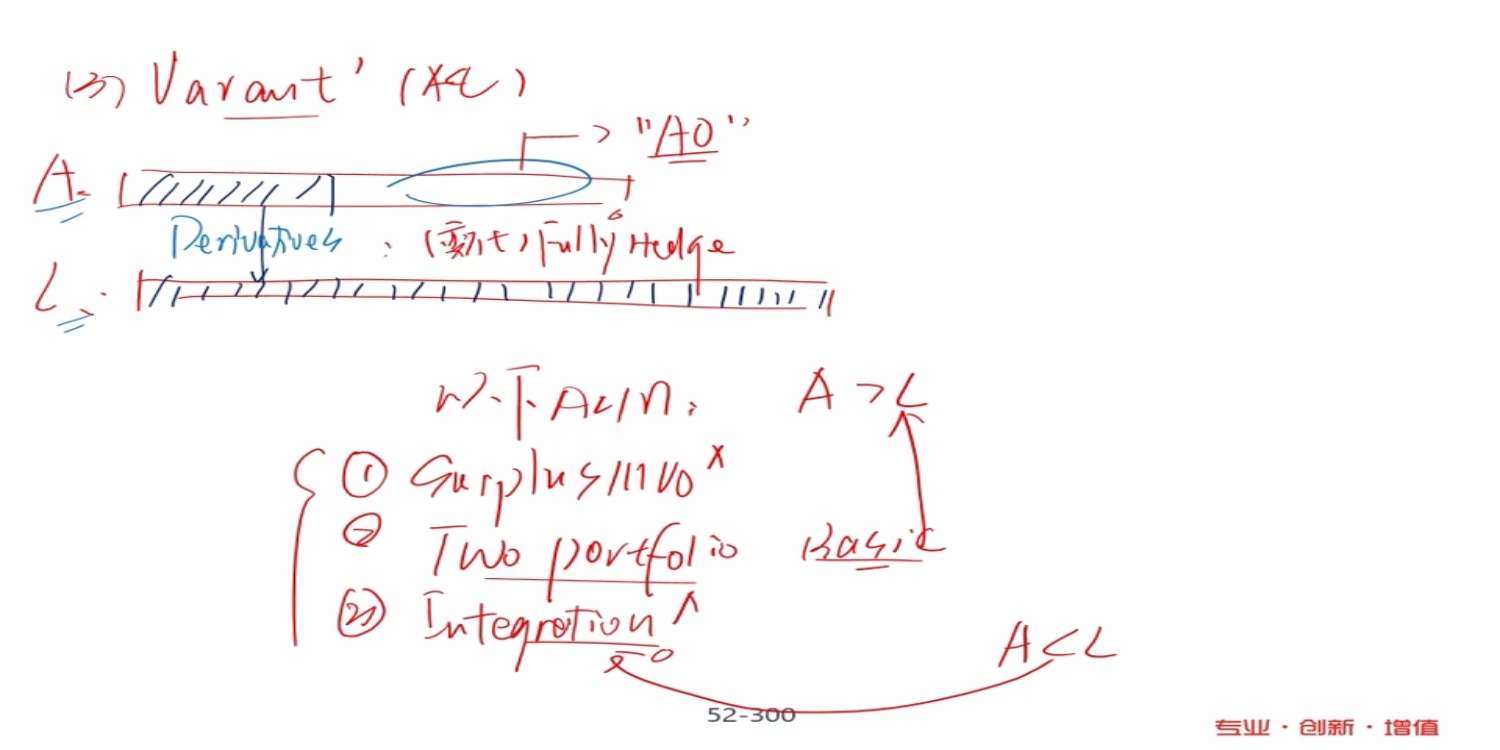 (3) Varant' (A<L)
"AO"
A.
Derivatives : Fully Hedge
L.
下 ALM: A > L
① Surplus MVO x
② Two portfolio Basic
③ Integration
A<L
52-300
专业·创新·增值